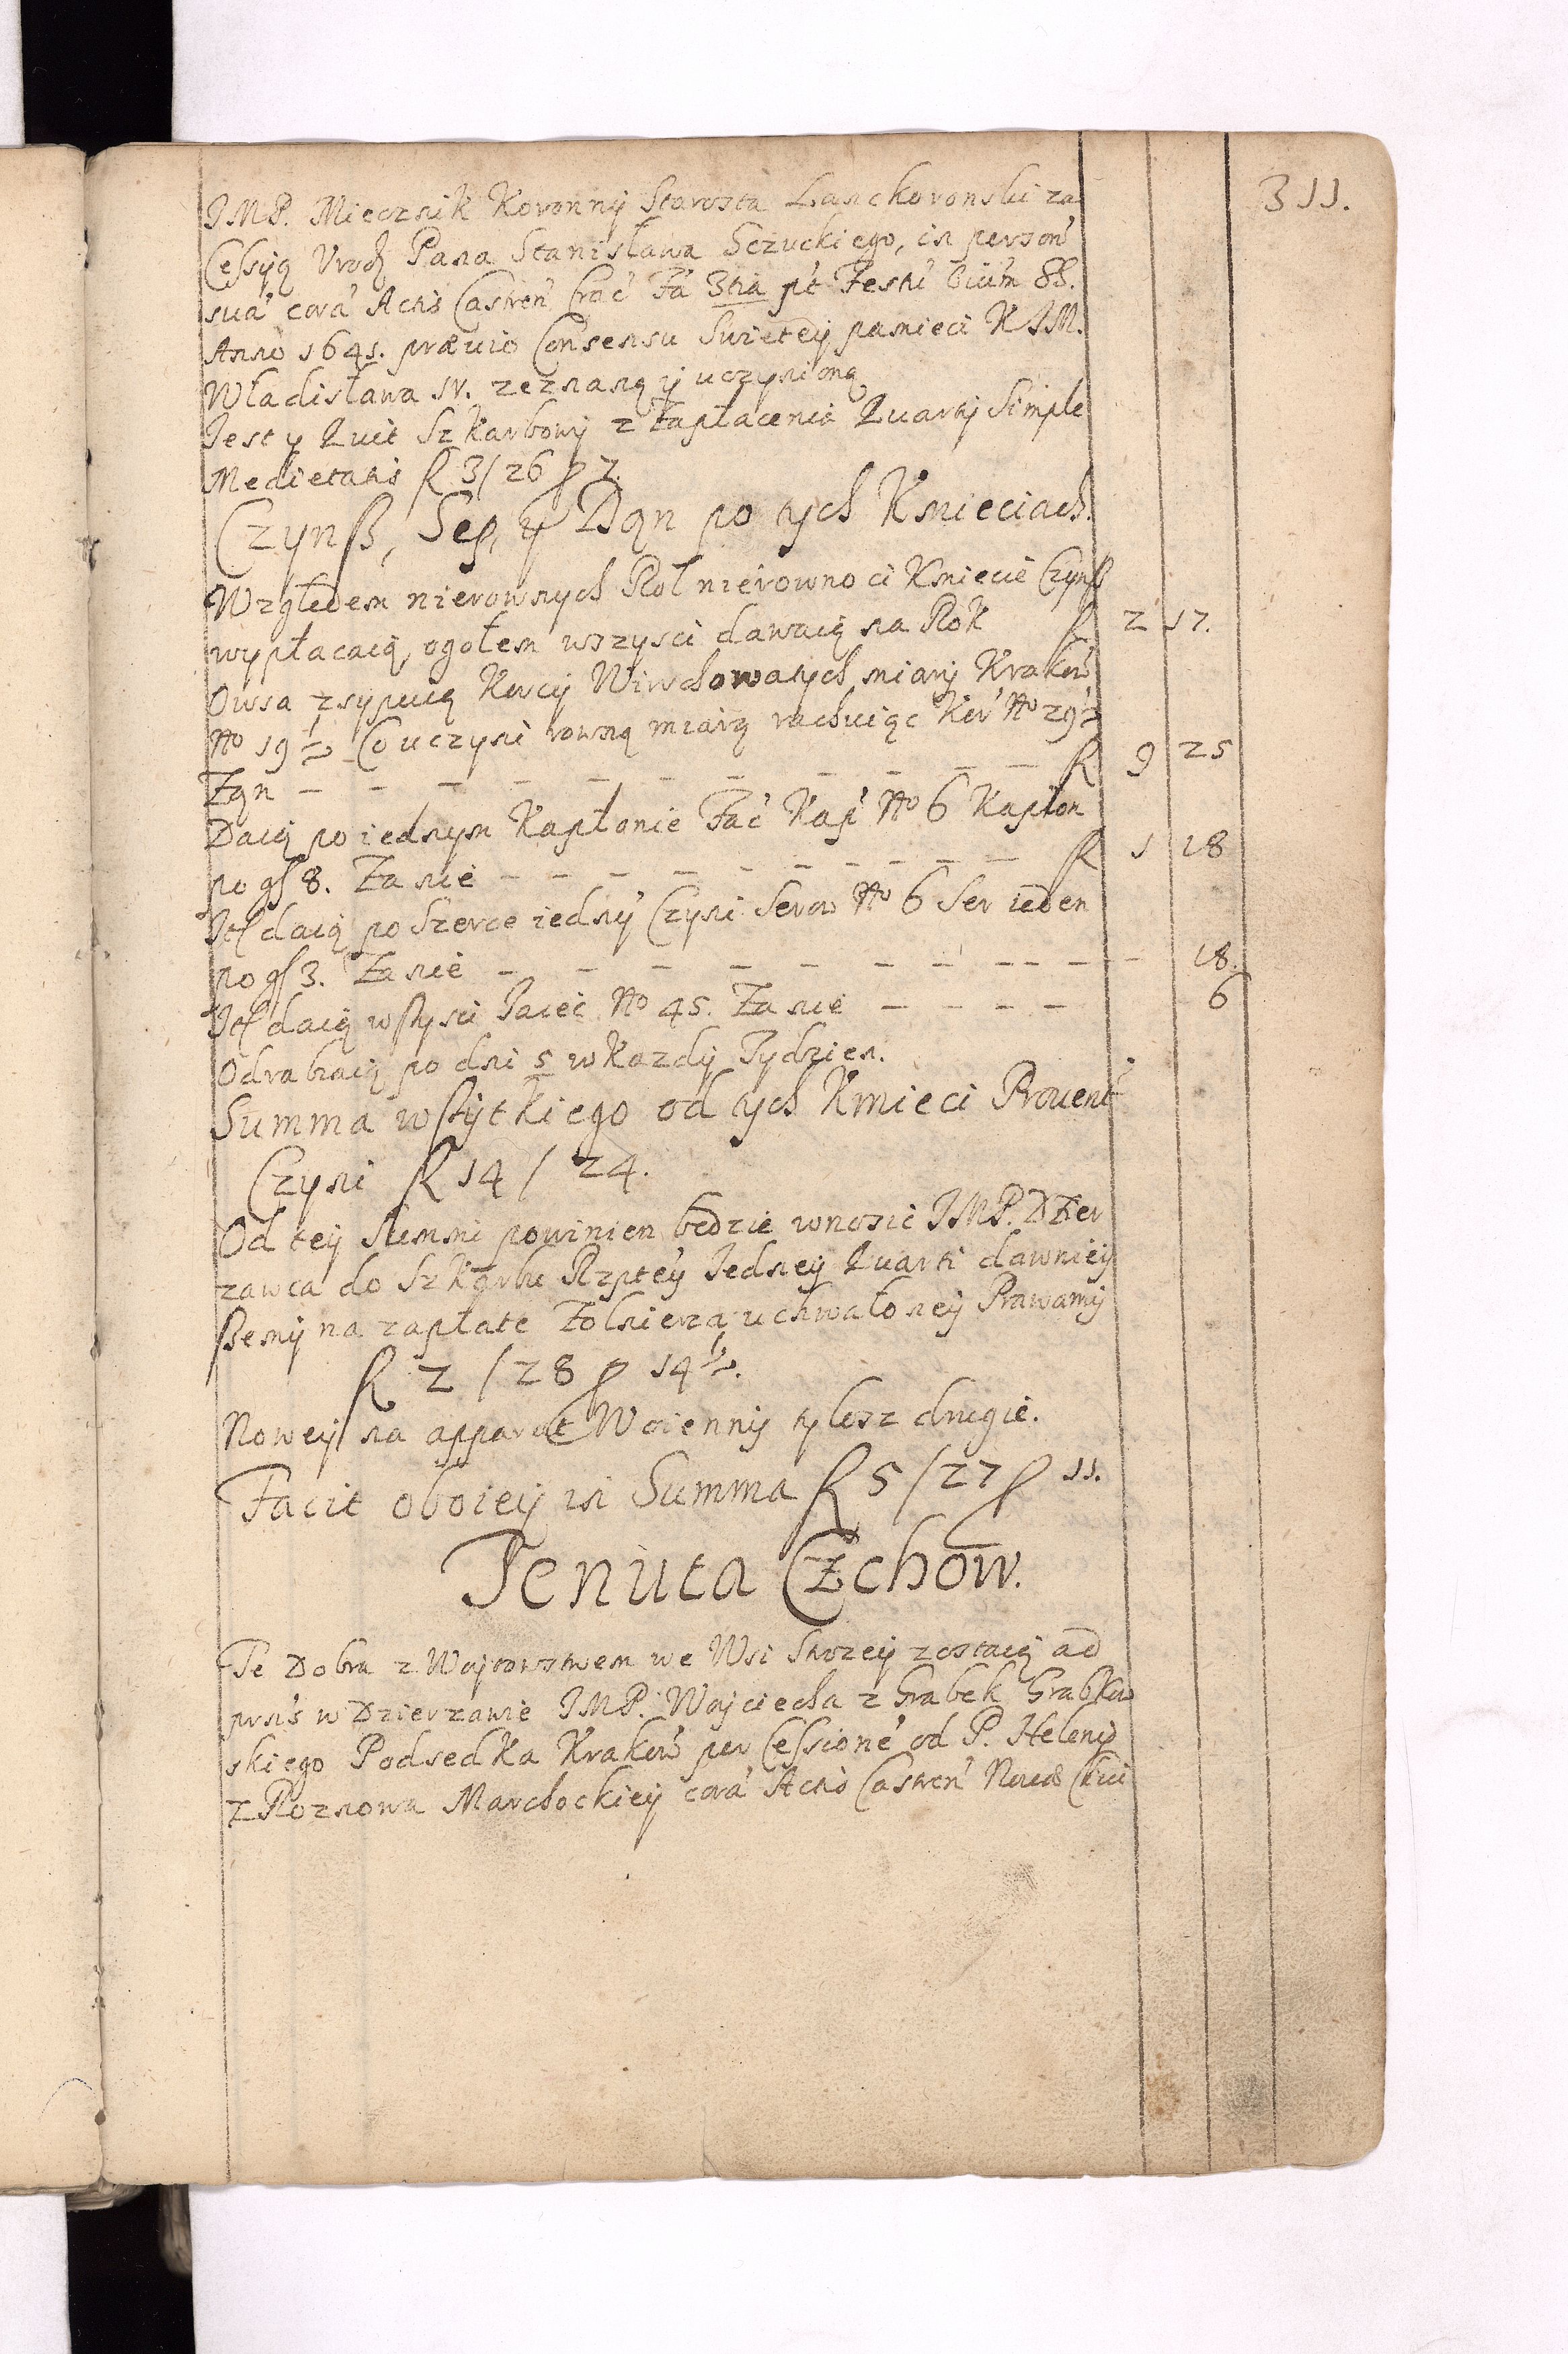 311.
JMP. Miecznik Koronny Starosta Lanckoronski za
Cessyą Urodz Pana Stanisława Sczuckiego, in person
suā corā Actis Castren Crac Fā 3tiā pt Festū Oiūm SS.
Anno 1641. præuio Consensu Swietey pamieci KJM.
Władisława IV. zeznaną y uczynioną
Jest y Quit Szkarbowy z Zapłacenia Quarty Simple
Medietatis fl 3/26 ₰ 7.
Czynß, Sep, y Dan po tych Kmieciach.
Względem nierownych Rol nierowno ci Kmiecie Czynß
wypłacaią, ogołem wszysci dawaią na Rok fl 2 17.
Owsa zsypuią Korcy Wirchowatych miary Krakow
No 19 ½ Co uczyni rowną miarą rachuiąc Kor No 29 ½
Zan – – – – – – – – – – fl 9 25
Daią po iednym Kapłonie Fac Kap No 6 Kapłon
po gß 8. Za nie – – – – – – – – fl 1 18
Jtl daią po Szerce iedny Czyni Serow No 6 Ser ieden
po gß 3. Za nie – – – – – – – – – – 18.
Jtl daią wßysci Jaiec No 45. Za nie – – – – 6
Odrabiaią po dni 5 w Kazdy Tydzien.
Summa wßytkiego od tych Kmieci Prouent
Czyni fl 14 / 24.
Od tey Summi powinien będzie wnosic JMP. Dzier
zawca do Szkarbu Rzptey Jedney Quarti dawniey
ßemy na zapłate Zolnierza uchwaloney Prawamy
fl 2 / 28 ₰ 14 ½.
Nowey na apparat Woienny tylosz drugie.
Facit oboiey in Summa fl 5 / 27 ₰ 11.
Tenuta Czchow.
Te Dobra z Woytowstwem we Wsi zostaią ad
prns w Dzierzawie JMP. Woyciecha z Grabek Grabkow
skiego Podsedka Krakow per Cessionē od P. Heleny
z Roznowa Marchockiey corā Actis Castren Novæ Civi